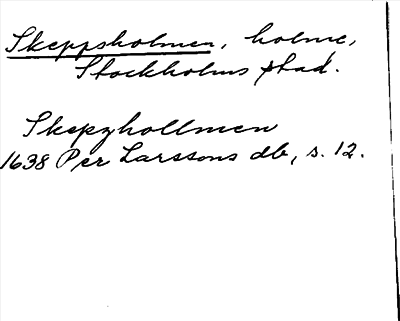 Skeppsholmen, holme,
Stockholms stad.
Skepzhollmen
1638 Per Larssons db, s. 12.